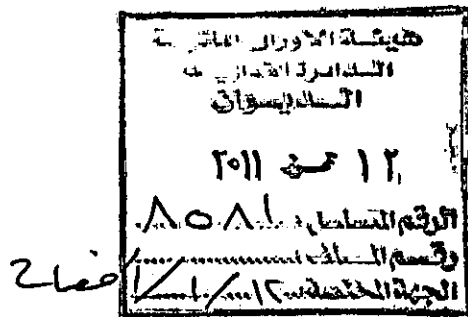 هيئة الأوراق المالية
الدائرة الإدارية
الديوان
١٢ ٢٠١١
الرقم المتسلسل ٨٥٨١
رقم الملف
الجهة المختصة ١٢/١/١
افصاح